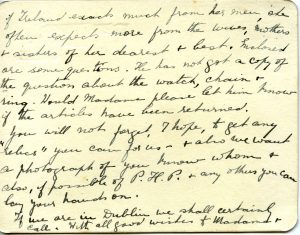 if Ireland exacts much from her men, she
often expects more from the wives, mothers
& sisters of her dearest & best. Enclosed
are some questions. He has not got a copy of
the question about the watch, chain &
ring. Would Madame please let him know
if the articles have been returned.
You will not forget, I hope, to get any
"relics" you can for us - & also we want
a photograph of you know whom &
also, if possible of P. H. P. & any others you can
lay your hands on.
If we are in Dublin we shall certainly
call. With all good wishes to Madame &